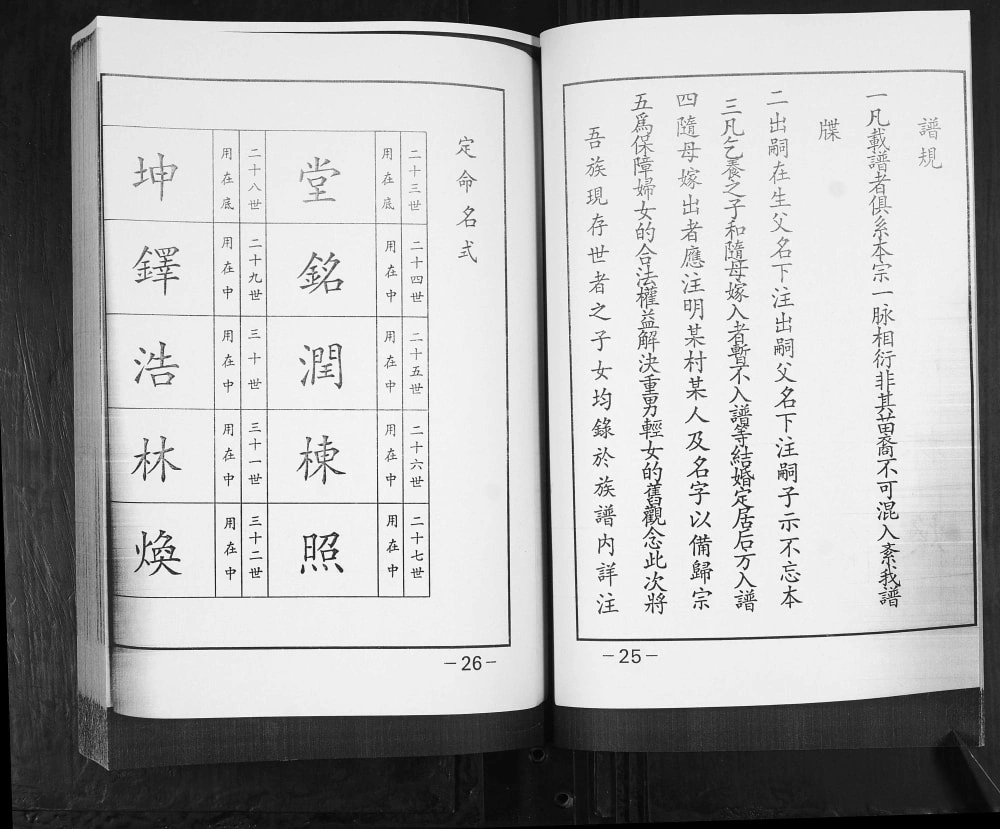 譜規
一凡載譜者俱系本宗一脉相衍非其苗裔不可混入紊我譜
牒
二出嗣在生父名下注出嗣父名下注嗣子示不忘本
三凡乞養之子和隨母嫁入者暫不入譜等結婚定居后方入譜
四隨母嫁出者應注明某村某人及名字以備歸宗
五爲保障婦女的合法權益解決重男輕女的舊觀念此次將
吾族現存世者之子女均錄於族譜内詳注
－25－
定命名式
二十三世
用在底
堂
二十四世
用在中
銘
二十五世
用在中
潤
二十六世
用在中
棟
二十七世
用在中
照
二十八世
用在底
坤
二十九世
用在中
鐸
三十世
用在中
浩
三十一世
用在中
林
三十二世
用在中
煥
－26－